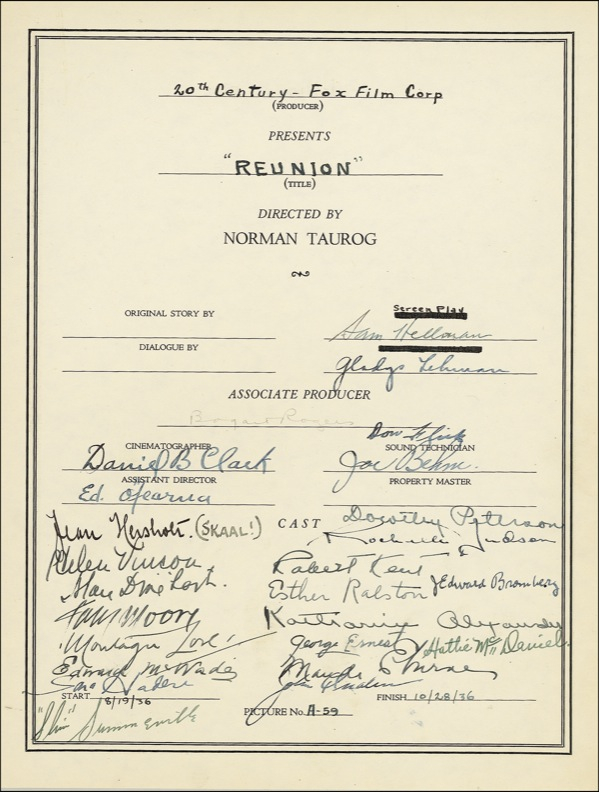 20th Century - Fox Film Corp
(PRODUCER)
PRESENTS
"REUNION"
(TITLE)
DIRECTED BY
NORMAN TAUROG
ORIGINAL STORY BY
Screen Play
Sam Hellman
DIALOGUE BY
Gladys Lehman
ASSOCIATE PRODUCER
Bogart Rogers
CINEMATOGRAPHER
SOUND TECHNICIAN
Daniel B Clark
Joe Behm.
ASSISTANT DIRECTOR
PROPERTY MASTER
Ed. O'Fearna
CAST
Dorothy Peterson
Jean Hersholt. (SKAAL!)
Rochelle Hudson
Helen Vinson
Robert Kent
Esther Ralston
J Edward Bromberg
Tom Moore
Katharine Alexander
Montagu Love!
George Ernest
Hattie McDaniel
Edward McWade
START 8/19/36
FINISH 10/28/36
PICTURE No. A-59
"Slim" Summerville